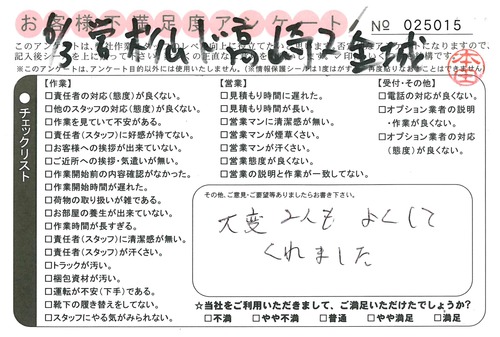 お客様不満足度アンケート
№ 025015
チェックリスト
【作業】
□責任者の対応(態度)が良くない。
□他のスタッフの対応(態度)が良くない。
□作業を見ていて不安がある。
□責任者(スタッフ)に好感が持てない。
□お客様への挨拶が出来ていない。
□ご近所への挨拶・気遣いが無い。
□作業開始前の内容確認がなかった。
□作業開始時間が遅れた。
□荷物の取り扱いが雑である。
□お部屋の養生が出来ていない。
□作業時間が長すぎる。
□責任者(スタッフ)に清潔感が無い。
□責任者(スタッフ)が汗くさい。
□トラックが汚い。
□梱包資材が汚い。
□運転が不安(下手)である。
□靴下の履き替えをしてない。
□スタッフにやる気がみられない。
【営業】
□見積もり時間に遅れた。
□見積もり時間が長い。
□営業マンに清潔感が無い。
□営業マンが煙草くさい。
□営業マンが汗くさい。
□営業態度が良くない。
□営業の説明と作業が一致してない。
【受付・その他】
□電話の対応が良くない。
□オプション業者の説明
・作業が良くない。
□オプション業者の対応
(態度)が良くない。
その他、ご意見・ご要望等ありましたらお書き下さい。
大変 2人も よくして
くれました
★当社をご利用いただきまして、ご満足いただけたでしょうか?
□不満 □やや不満 □普通 □やや満足 □満足